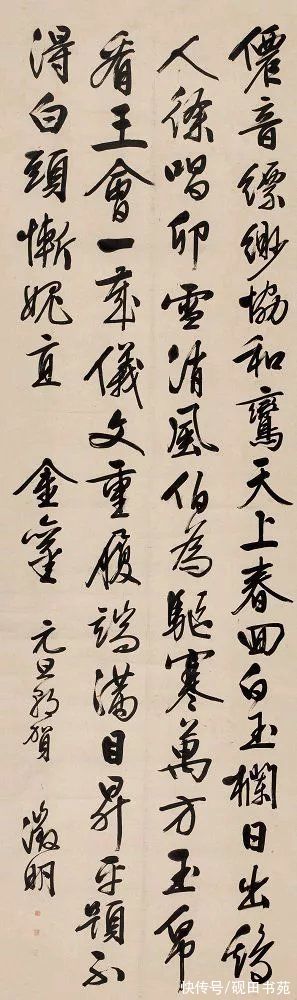 僊音縹緲協和鸞天上春回白玉欄日出鷄
人徐唱卯雪消風伯為驅寒萬方玉帛
看王會一歲儀文重履端滿目昇平題不
得白頭慚媿直 金鑾 元旦朝賀 徵明
快传号/砚田书苑